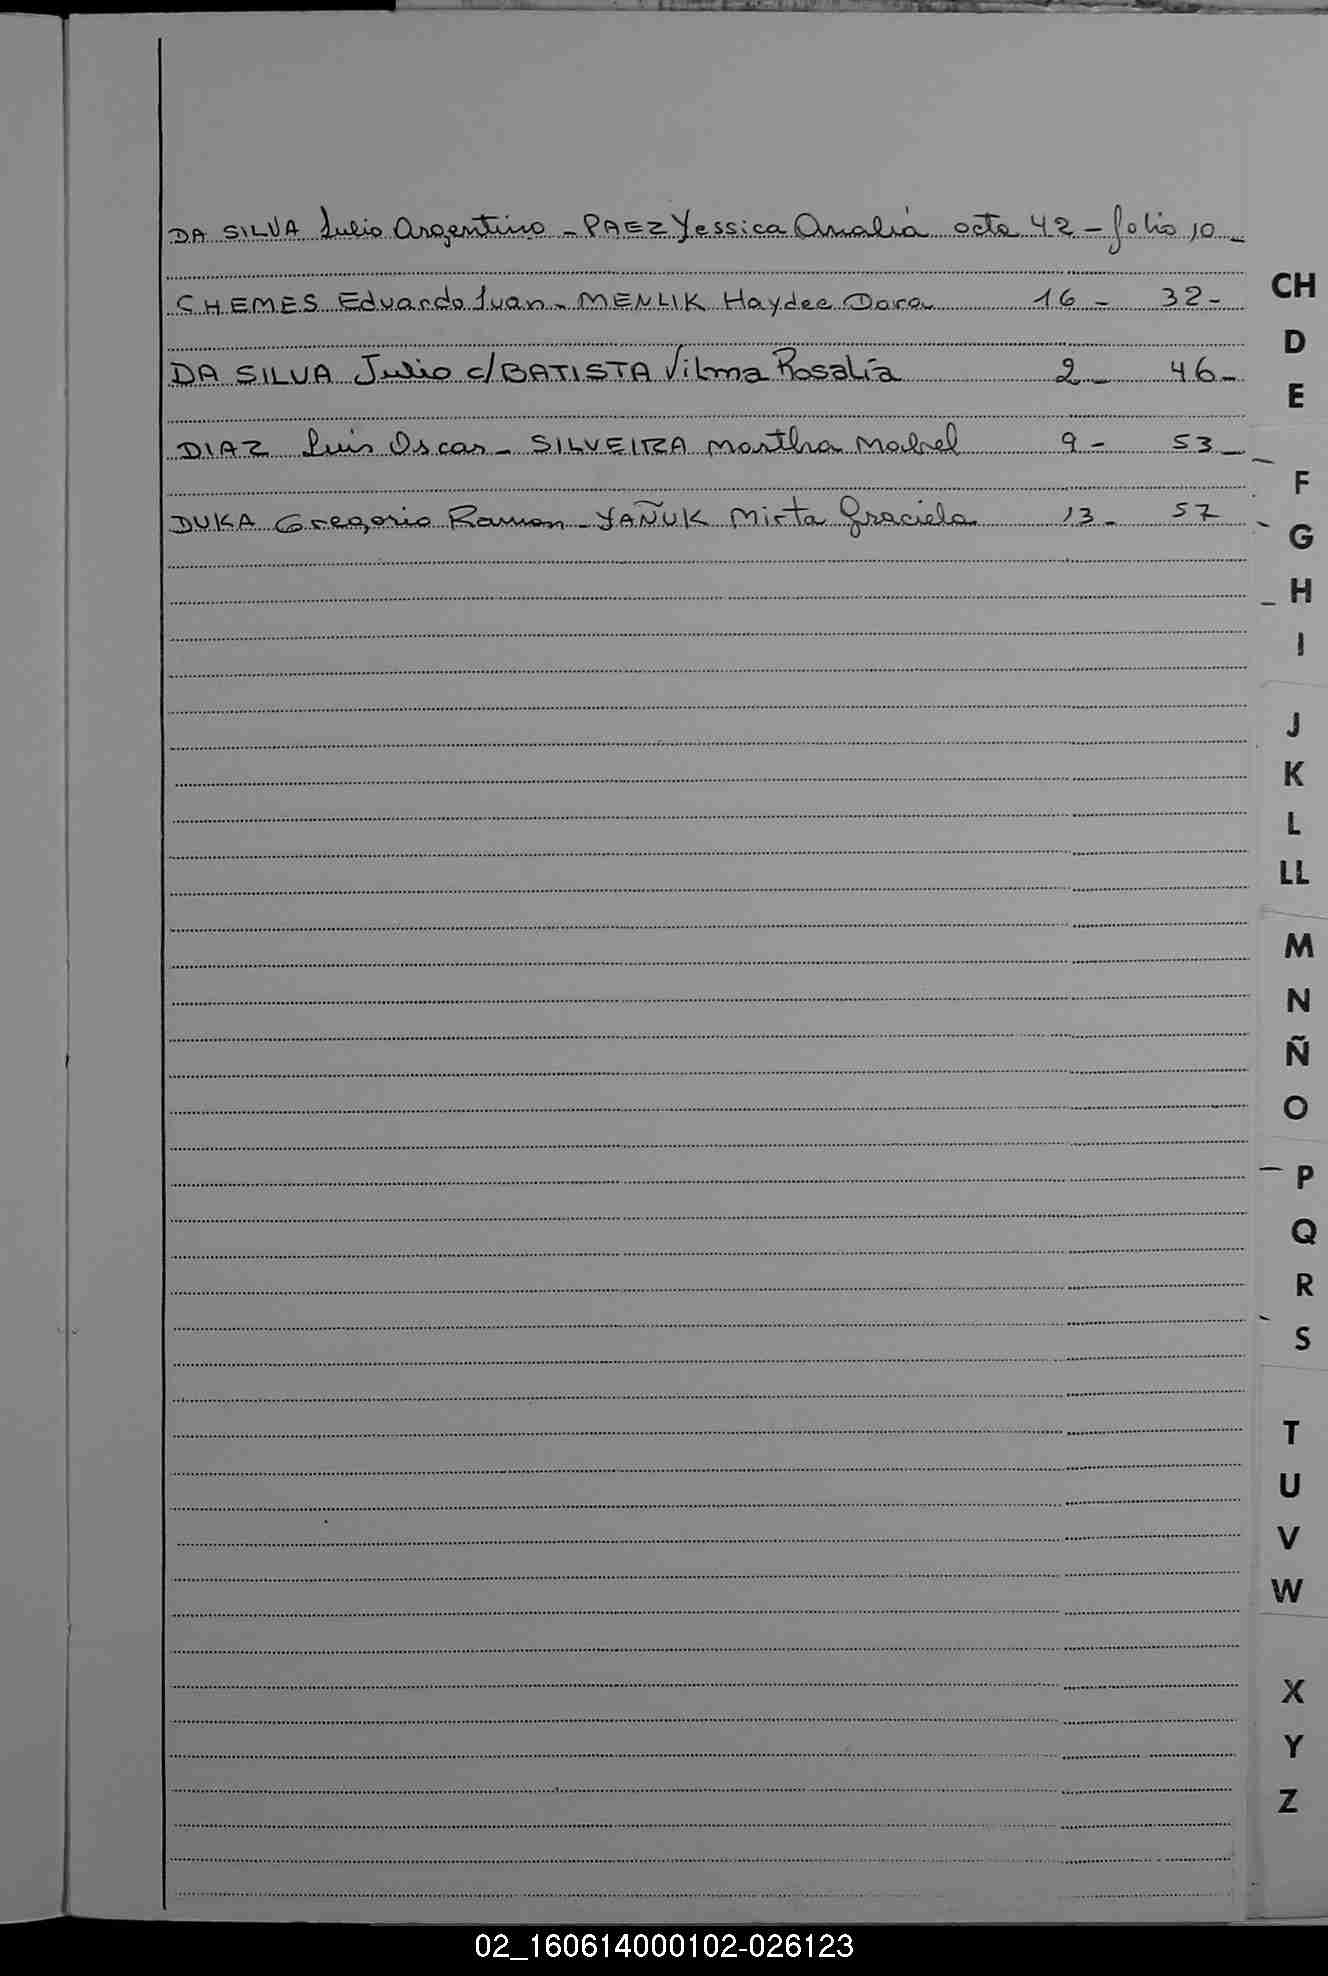 DA SILVA Julio Argentino - PAEZ Yessica Analía acta 42 - folio 10 -
CHEMES Eduardo Juan - MENLIK Haydee Dora 16 - 32 -
DA SILVA Julio c/ BATISTA Vilma Rosalía 2 - 46 -
DIAZ Luis Oscar - SILVEIRA Martha Mabel 9 - 53 -
DUKA Gregorio Ramon - YAÑUK Mirta Graciela 13 - 57
CH
D
E
F
G
H
I
J
K
L
LL
M
N
Ñ
O
P
Q
R
S
T
U
V
W
X
Y
Z
02_160614000102-026123